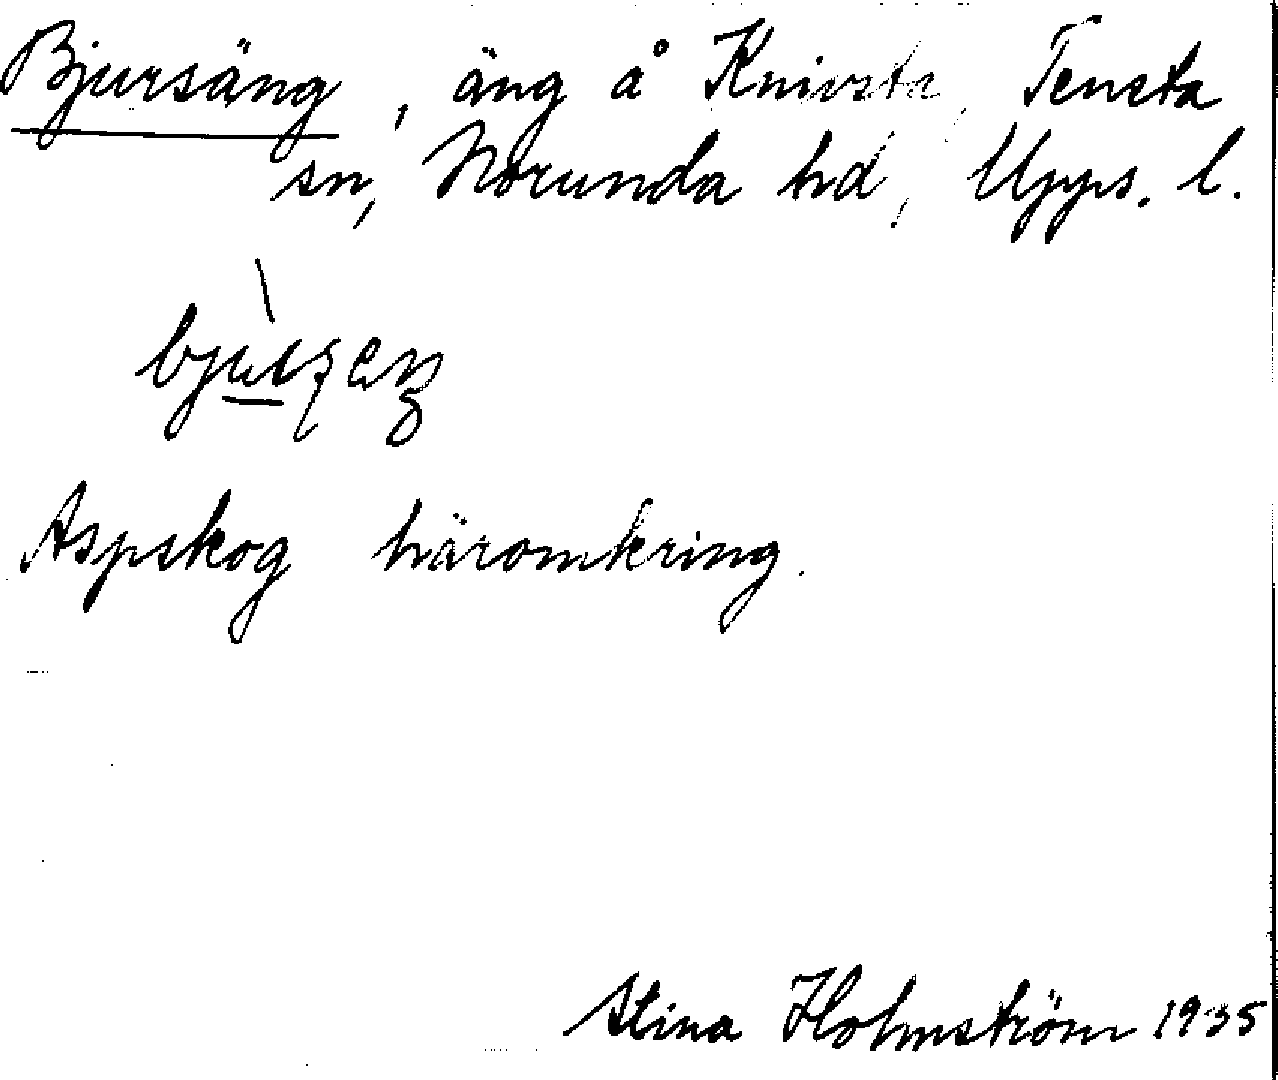 Bjursäng, äng å Knivsta, Tensta
sn, Norunda hd, Upps. l.
Aspskog häromkring.
Stina Holmström 1935